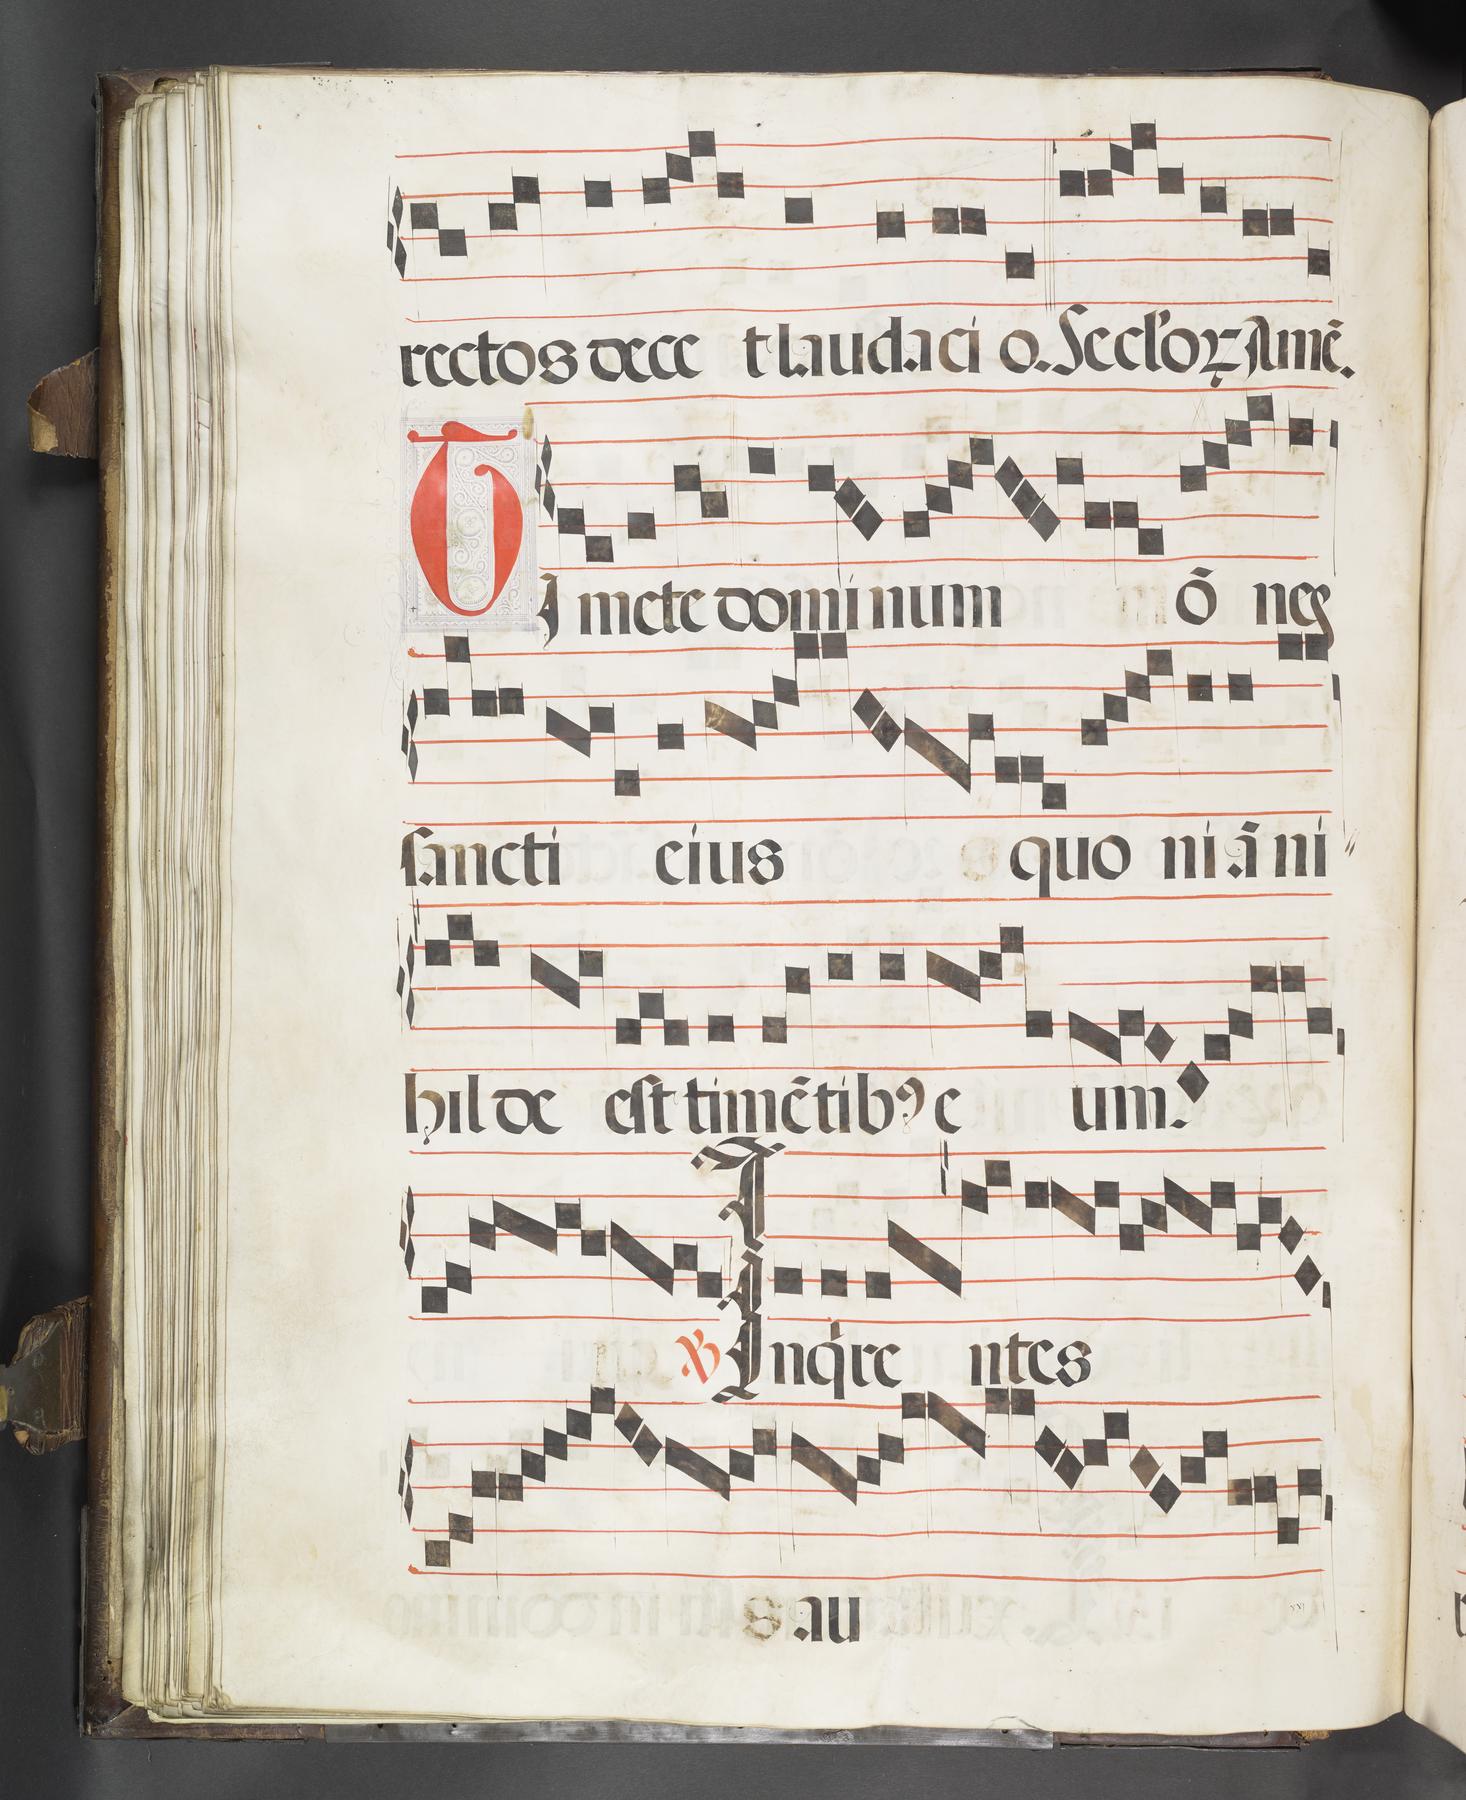 rectos dece t laudaci o. Seclorꝝ Amē.
TImete domi num ō nes
sancti eius quo ni ā ni
hil de est timētibꝰ e um.
℣ Inqͥre ntes
au